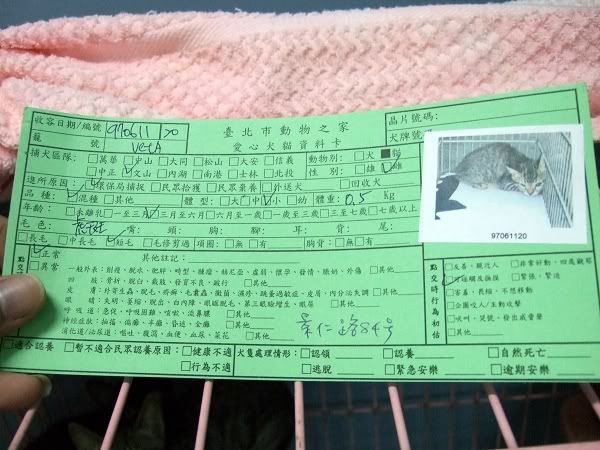 收容日期/編號 970611 20
臺北市動物之家
晶片號碼:
籠號 VG1A
愛心犬貓資料卡
犬牌號碼
捕犬區隊: □萬華 □中山 □大同 □松山 □大安 □信義 動物別: □犬 ■貓
□中正 □文山 □內湖 □南港 □士林 □北投 性別: □雄
進所原因: □環保局捕捉 □民眾拾獲 □民眾棄養 □外送犬 □回收犬
品種: □混種 □其他 體型: □大□中□小□幼 體重: 0.5 Kg
年齡: □未離乳□一至三月□三月至六月□六月至一歲□一歲至三歲□三至七歲□七歲以上
毛色: 嘴: 頭: 胸: 腳: 耳: 背: 尾:
□長毛 □中長毛 □短毛 □毛修剪過 項圈: □無 □有 胸背: □無 □有
97061120
點交
□正常
□異常
其他註記:
一般外傷: 削瘦、脫水、肥胖、畸型、腫瘤、幼尼亞、虛弱、懷孕、發情、賬奶、外傷 □其他
四肢: 骨折、脫臼、截肢、發育不良、跛行 □其他
皮膚: 外寄生蟲、脫毛、疥癬、毛囊蟲、黴菌、濕疹、跳蚤過敏症、皮屑、內分泌失調 □其他
眼睛: 失明、萎縮、脫出、白內障、眼瞼脫毛、第三眼瞼增生、眼屎 □其他
呼吸道: 急促、呼吸困難、咳嗽、流鼻膿 □其他
神經症狀: 抽搐、偏癱、半癱、昏迷、全癱 □其他
消化道/泌尿道: 嘔吐、腹瀉、血便、血尿、菜花 □其他
崇仁路84号
點交時行為初估
□友善、親近人 □非常好動、四處觀望
□可碰觸及撫摸 □緊張、緊迫
□害羞、畏縮、不想移動
□企圖咬人/主動攻擊
□犬吠、哭號、發出威脅聲
□其他
□適合認養 □暫不適合民眾認養原因: □健康不適
□行為不適
犬隻處理情形: □認領 □認養 □自然死亡
□逃脫 □緊急安樂 □逾期安樂